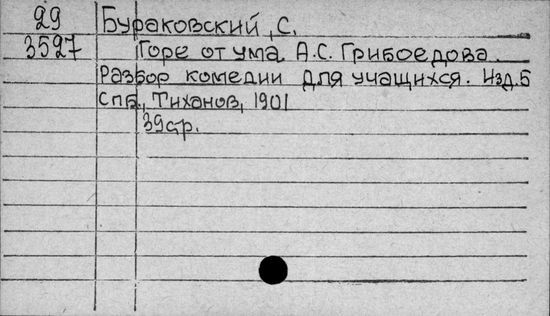 29 Бураковский, С.
3527 Горе от ума А.С. Грибоедова.
Разбор комедии для учащихся. Изд.5
Спб., Тиханов, 1901
39стр.